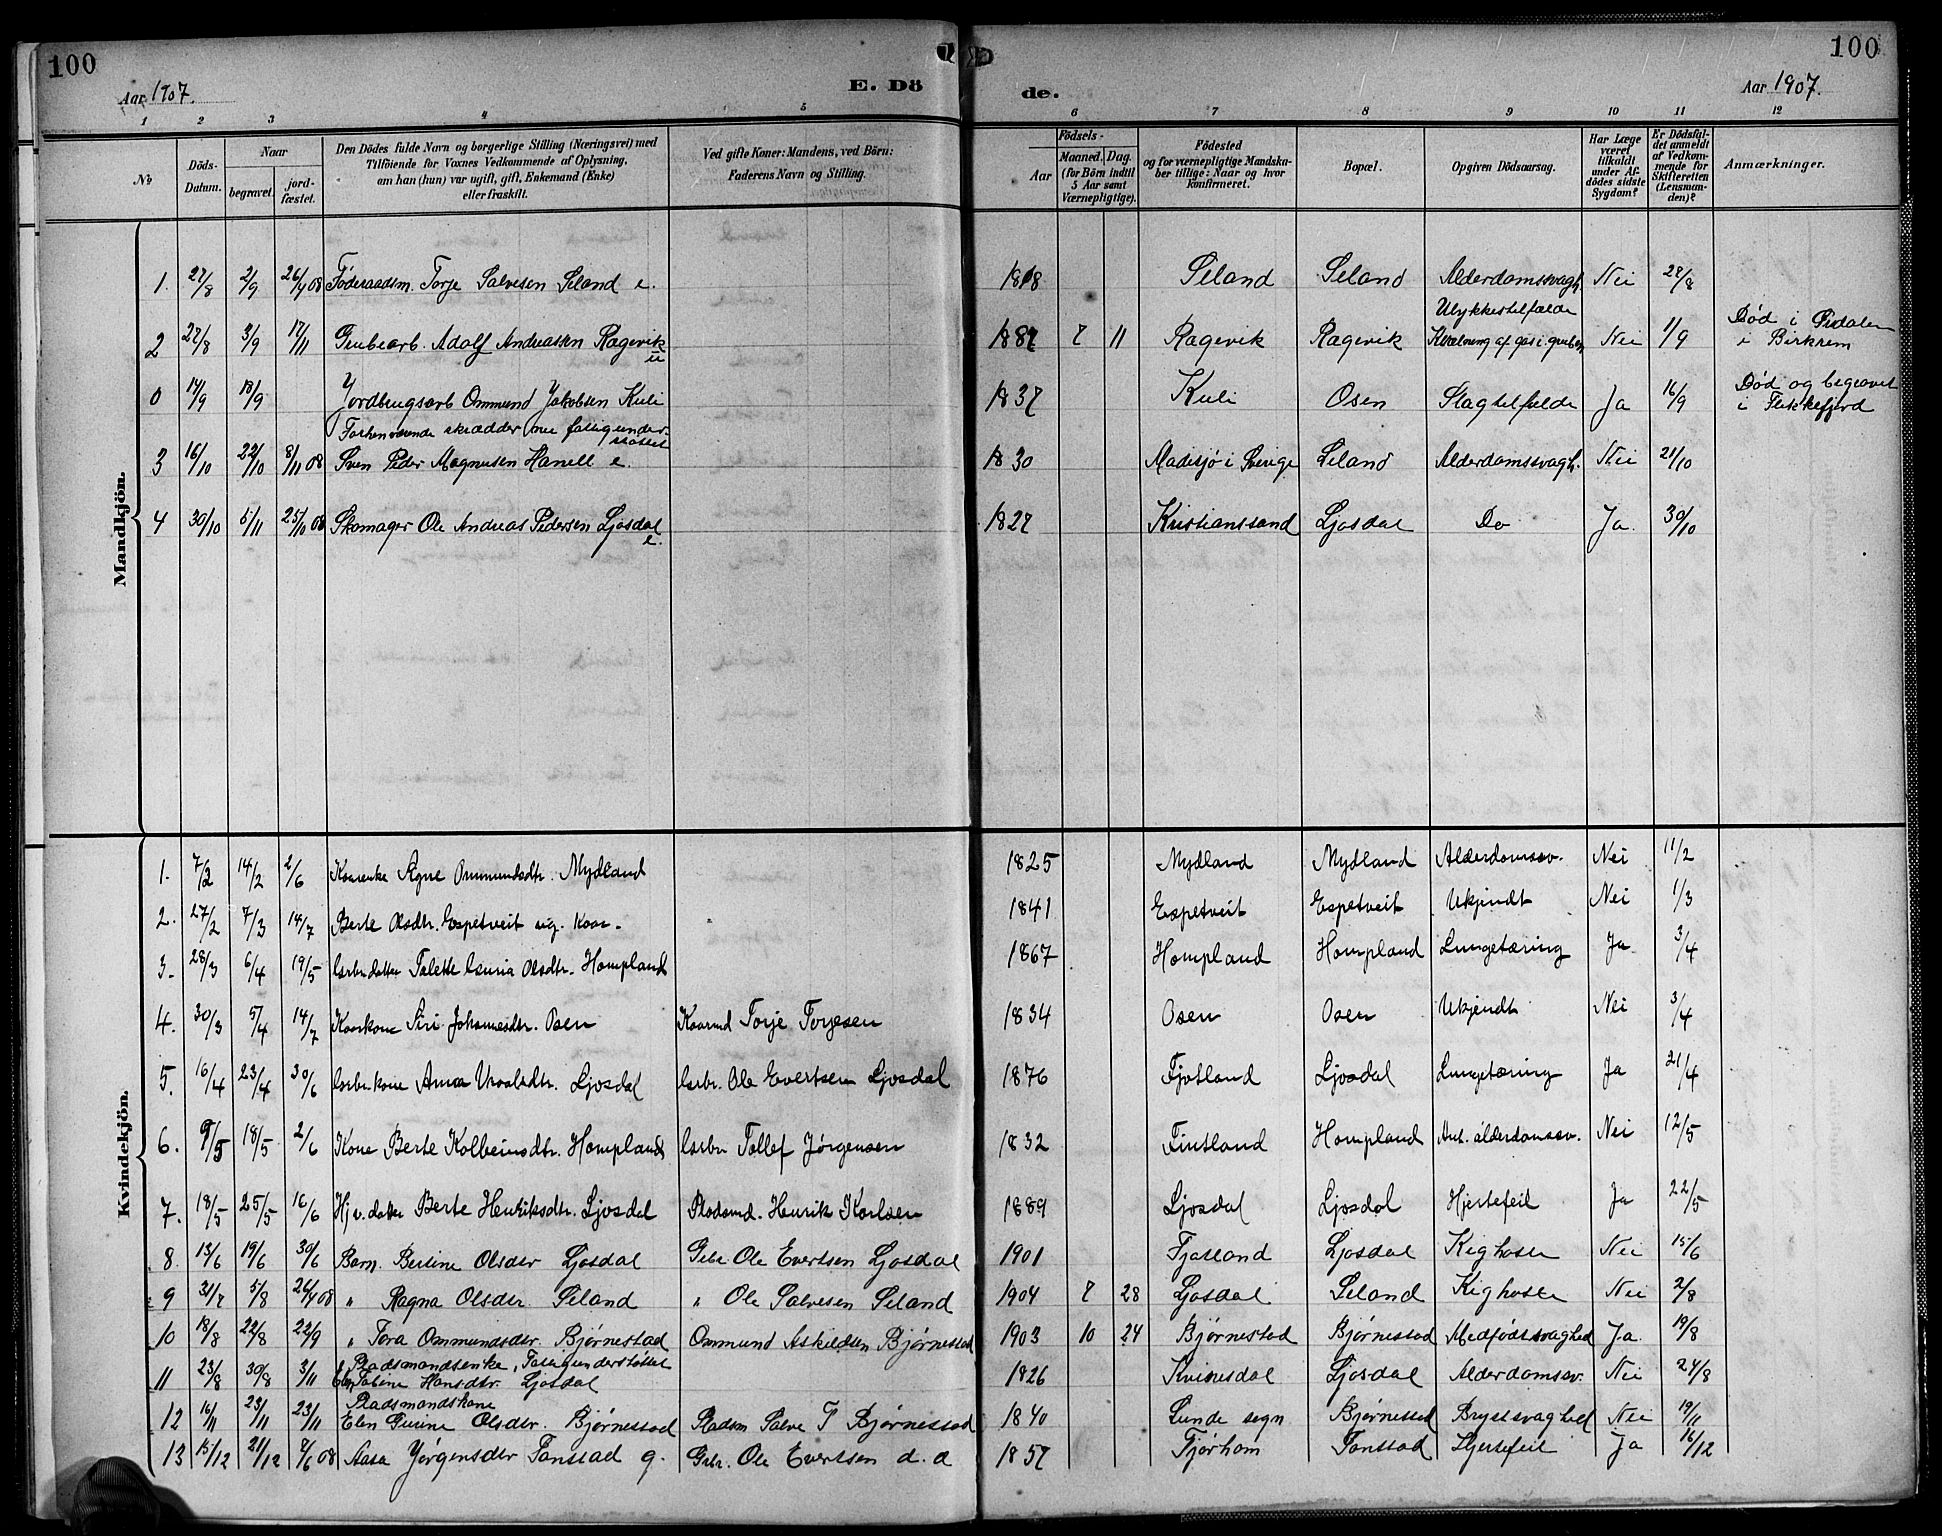 100
100
Aar 1907.
E. Dö
de.
Aar 1907.
1 2 3 4 5 6 7 8 9 10 11 12
No
Döds-Datum.
Naar
begravet.
jord-fæstet.
Den Dödes fulde Navn og borgerlige Stilling (Næringsvei) med
Tilföiende for Voxnes Vedkommende af Oplysning,
om han (hun) var ugift, gift, Enkemand (Enke)
eller fraskilt.
Ved gifte Koner: Mandens, ved Börn:
Faderens Navn og Stilling.
Födsels-
Aar
Maaned. Dag.
(for Börn indtil
5 Aar samt
Værnepligtige).
Födested
og for værnepligtige Mandska-
ber tillige: Naar og hvor
konfirmeret.
Bopæl.
Opgiven Dödsaarsag.
Har Læge
været
tilkaldt
under Af-
dödes sidste
Sygdom?
Er Dödsfal-
det anmeldt
af Vedkom-
mende for
Skifteretten
(Lensman-
den)?
Anmærkninger.
Mandkjön.
1. 27/8 2/9 26/4 08 Föderaadsm. Torje Salvesen Seland e. 1818 Seland Seland Alderdomssvagh. Nei 28/8
2 27/8 3/9 17/11 Grubearb. Adolf Andreassen Ragevik u 1887 7 11 Ragevik Ragevik Ulykkestilfælde Kvælning af gas i gruben Nei 1/9 Død i Ørsdalen i Birkrem
0 14/9 18/9 Jordbrugsarb Ommund Jakobsen Kuli 1837 Kuli Osen Slagtilfælde Ja 16/9 Død og begravet i Flekkefjord
Forhenværende skrædder nu fattigunder-støttet
3 16/10 22/10 8/11 08 Sven Peder Magnusen Hanell e. 1830 Madesjö i Sverige Seland Alderdomssvagh. Nei 21/10
4 30/10 5/11 25/10 08 Skomager Ole Andreas Pedersen Ljosdal e. 1827 Kristianssand Ljosdal Do Ja. 30/10
Kvindekjön.
1. 7/2 14/2 2/6 Kaarenke Signe Ommundsdtr. Mydland 1825 Mydland Mydland Alderdomssv. Nei 11/2
2. 27/2 7/3 14/7 Berte Olsdtr. Espetveit ug. Kaar. 1841 Espetveit Espetveit Ukjendt Nei 1/3
3. 28/3 6/4 19/5 Grbr. datter Tolette Olsdtr. Hompland 1867 Hompland Hompland Lungetæring Ja 3/4
4. 30/3 5/4 14/7 Kaarkone Siri Johannesdtr. Osen Kaarmd Torje Torjesen 1834 Osen Osen Ukjendt Nei 3/4
5. 16/4 23/4 30/6 Grbr. kone Anna Ljosdal Grbr. Ole Evertsen Ljosdal 1876 Fjotland Ljosdal Lungetæring Ja 21/4
6. 9/5 18/5 2/6 Kone Berte Kolbeinsdtr. Hompland Grbr Tollef Jørgensen 1832 Fintland Hompland Ant. alderdomssv. Nei 12/5
7. 18/5 25/5 16/6 Hjv. datter Berte Henriksdtr. Ljosdal Pladsmd. Henrik Karlsen 1889 Ljosdal Ljosdal Hjertefeil Ja 22/5
8. 13/6 19/6 30/6 Barn. Berline Olsdtr Ljosdal Grbr Ole Evertsen Ljosdal 1901 Fjotland Ljosdal Kighoste Nei 15/6
9 31/7 5/8 26/4 08 " Ragna Olsdtr. Seland " Ole Salvesen Seland 1904 7 28 Ljosdal Seland Kighoste Nei 2/8
10 18/8 22/8 22/9 " Tora Ommundsdtr. Bjørnestad Ommund Askildsen Bjørnestad 1903 10 24 Bjørnestad Bjørnestad Medfødt svaghed Ja. 19/8
Pladsmandsenke, Fattigunderstøttet
11 23/8 30/8 3/11 Tobine Hansdtr. Ljosdal 1826 Kvinesdal Ljosdal Alderdomssv. Nei 24/8
Pladsmandskone
12 16/11 23/11 23/11 Elen Gurine Olsdtr. Bjørnestad Pladsm Salve T Bjørnestad 1840 Lunde sogn Bjørnestad Brystsvaghed Nei 19/11
13 15/12 21/12 8/6 08 Aasa Jörgensdtr Tonstad g. Grbr. Ole Evertsen d. d 1857 Fjørhom Tonstad Hjertefeil Ja 16/12